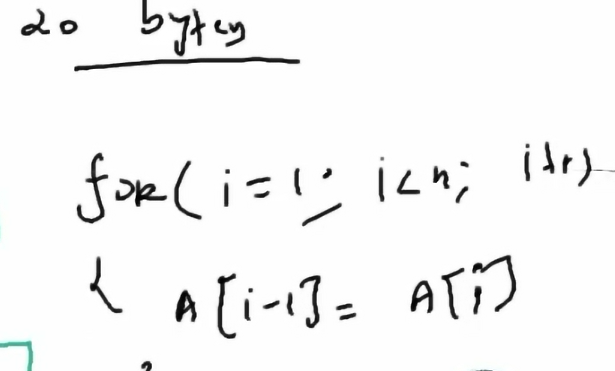 20 bytes
for(i=1; i<n; i++)
{ A[i-1]= A[i]